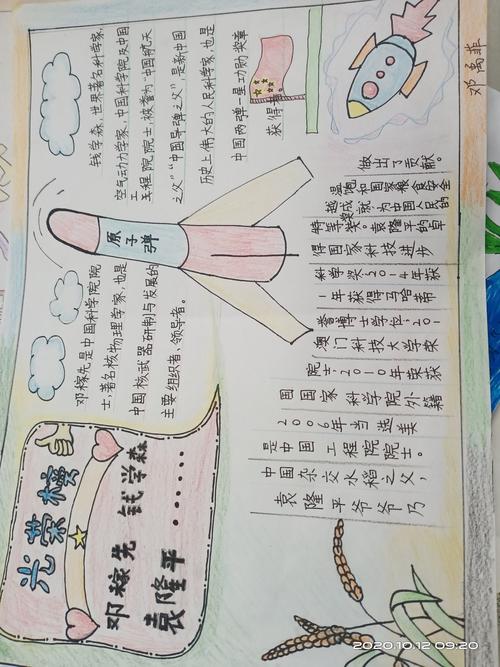 光荣榜
邓稼先 钱学森
袁隆平 ······
邓稼先是中国科学院院
士,著名核物理学家,也是
中国核武器研制与发展的
主要组织者、领导者。
原子弹
钱学森,世界著名科学家,
空气动力学家,中国科学院及中国
工程院院士,被誉为"中国航天
之父""中国导弹之父"是新中国
历史上伟大的人民科学家,也是
中国两弹一星功勋奖章
获得者。
袁隆平爷爷乃
中国杂交水稻之父,
是中国工程院院士。
2006年当选美
国国家科学院外籍
院士2010年荣获
澳门科技大学荣
誉博士学位。201
1年获得马哈蒂
科学奖2014年获
得国家科技进步
特等奖。袁隆平的卓
越成就,为中国人民的
温饱和国家粮食安全
做出了贡献。
邓禹菲
2020.10.12 09:20